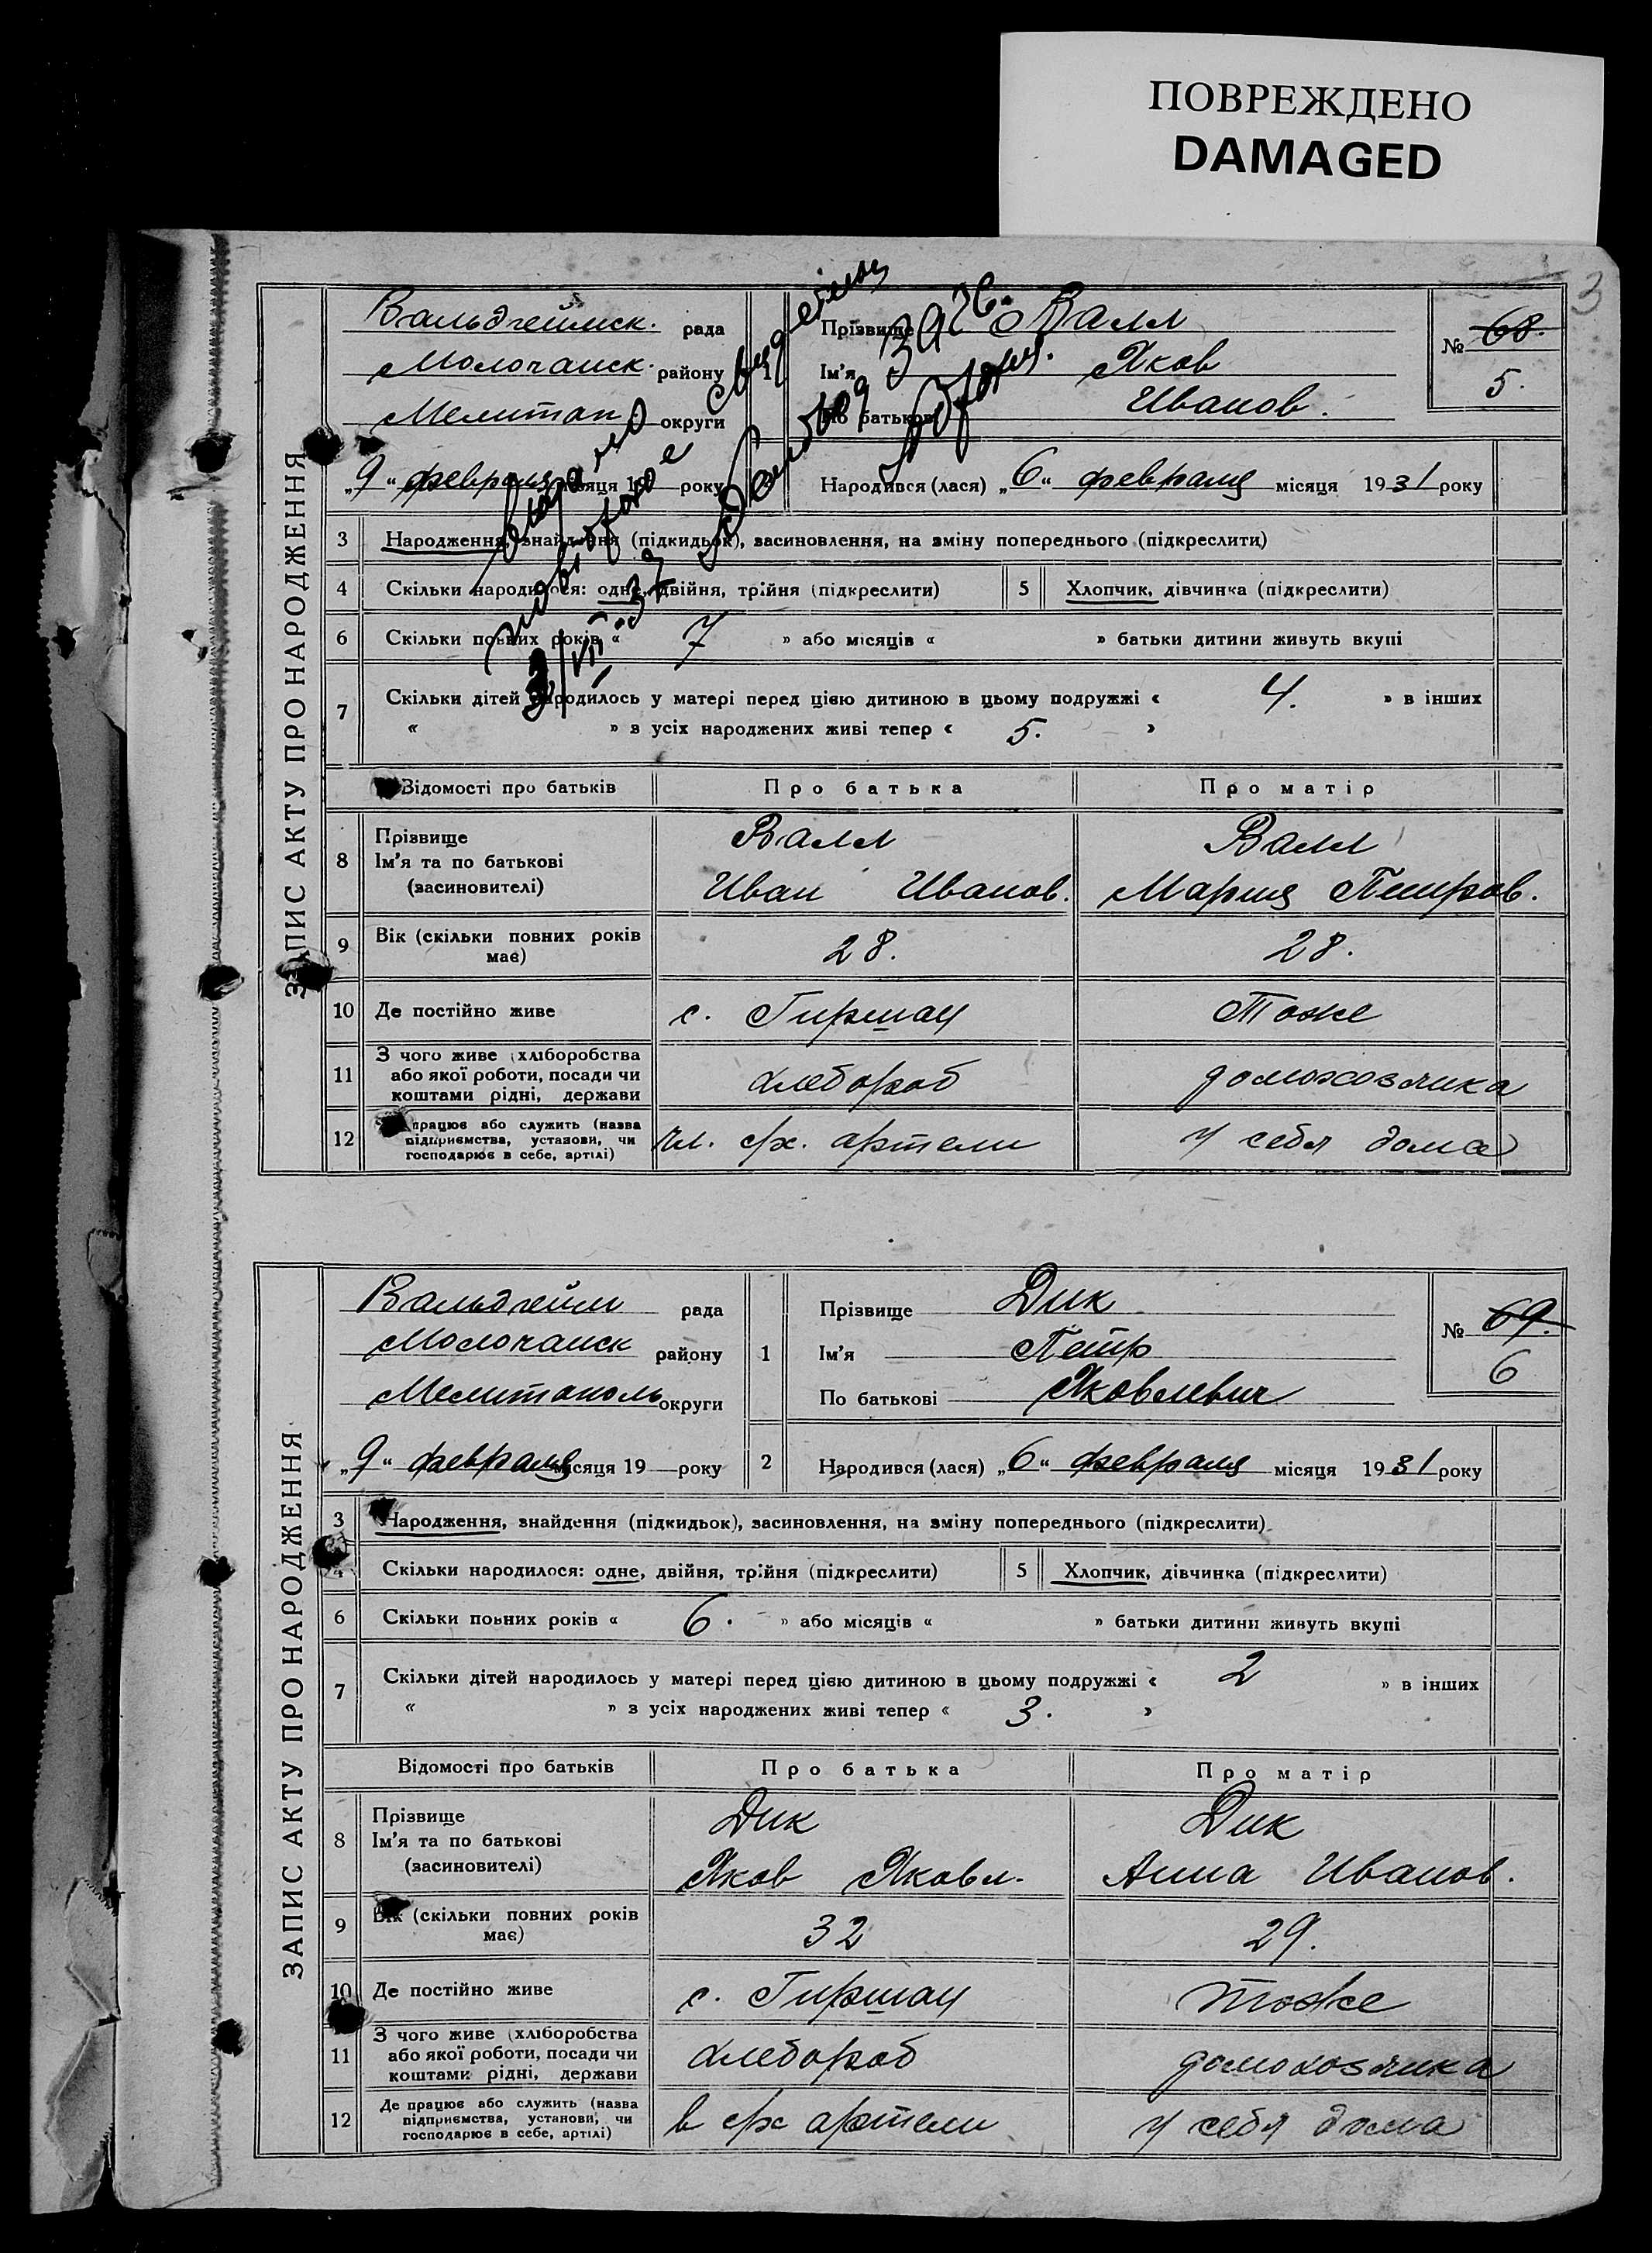 ПОВРЕЖДЕНО
DAMAGED
3
ЗАПИС АКТУ ПРО НАРОДЖЕННЯ
Вальдгеймск. рада
Молочанск. району
Мелитоп. округи
„9“ февраля місяця 19 року
1
Прізвище Валл
Ім'я Яков
По батькові Иванов.
№ 68.
5.
Народився (лася) „6“ февраля місяця 1931 року
Выдано
повторное
свидетельс
3/VII-37
3 Народження, знайдення (підкидьок), засиновлення, на зміну попереднього (підкреслити)
4 Скільки народилося: одне, двійня, трійня (підкреслити) 5 Хлопчик, дівчинка (підкреслити)
6 Скільки повних років « 7 » або місяців « » батьки дитини живуть вкупі
7 Скільки дітей народилось у матері перед цією дитиною в цьому подружжі « 4. » в інших
« » з усіх народжених живі тепер « 5. »
Відомості про батьків Про батька Про матір
8 Прізвище Валл Валл
Ім'я та по батькові Иван Иванов. Мария Петров.
(засиновителі)
9 Вік (скільки повних років має) 28. 28.
10 Де постійно живе с. Гиршау Тоже
11 З чого живе (хліборобства
або якої роботи, посади чи хлебороб домохозяйка
коштами рідні, держави
12 працює або служить (назва
підприємства, установи, чи чл. с/х. артели у себя дома
господарює в себе, артілі)
ЗАПИС АКТУ ПРО НАРОДЖЕННЯ
Вальдгейм рада
Молочанск району
Мелитополь округи
„9“ февраля місяця 19 року
1
Прізвище Дик
Ім'я Петр
По батькові Яковлевич
№ 69.
6
2 Народився (лася) „6“ февраля місяця 1931 року
3 Народження, знайдення (підкидьок), засиновлення, на зміну попереднього (підкреслити)
4 Скільки народилося: одне, двійня, трійня (підкреслити) 5 Хлопчик, дівчинка (підкреслити)
6 Скільки повних років « 6. » або місяців « » батьки дитини живуть вкупі
7 Скільки дітей народилось у матері перед цією дитиною в цьому подружжі « 2 » в інших
« » з усіх народжених живі тепер « 3. »
Відомості про батьків Про батька Про матір
8 Прізвище Дик Дик
Ім'я та по батькові Яков Яковл. Анна Иванов.
(засиновителі)
9 Вік (скільки повних років має) 32 29.
10 Де постійно живе с. Гиршау тоже
11 З чого живе (хліборобства
або якої роботи, посади чи хлебороб домохозяйка
коштами рідні, держави
12 Де працює або служить (назва
підприємства, установи, чи в с/х артели у себя дома
господарює в себе, артілі)